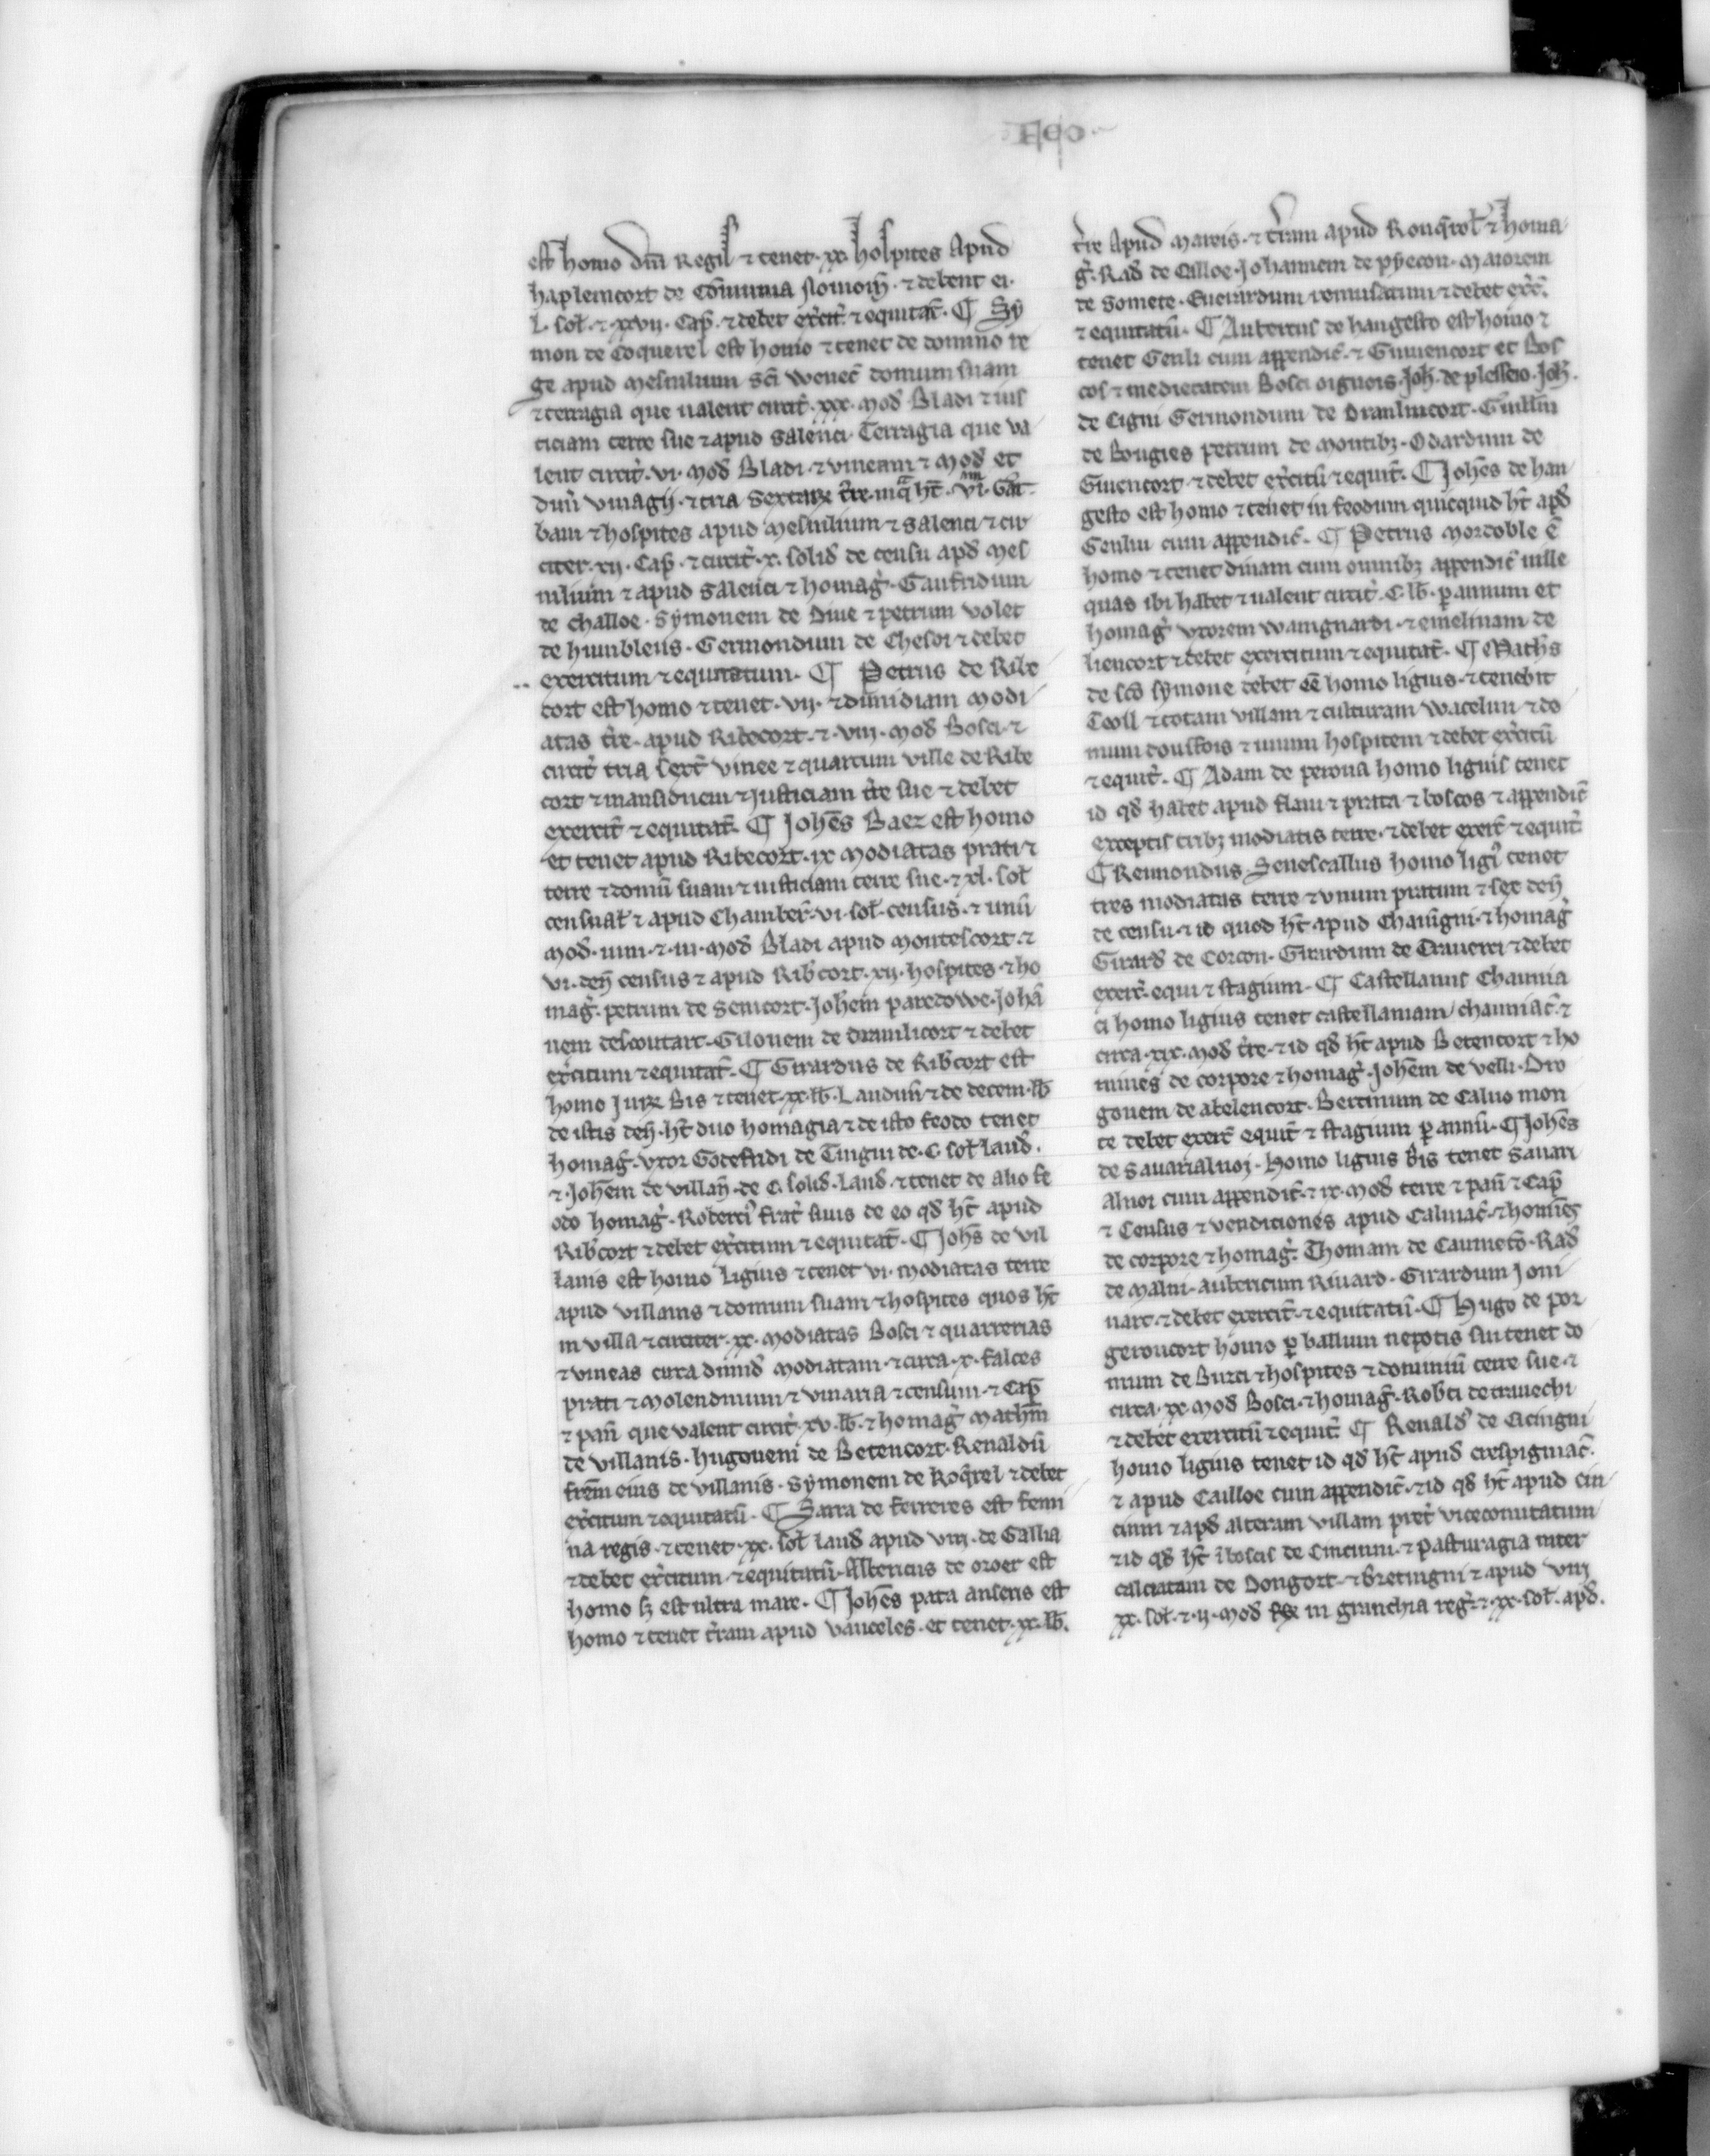 est homo dn̄i Regis ⁊ tenet ·xx· hospites Apud
haplemcort de Cōmunia Nouioḿ · ⁊ debent ei ·
l · sol̄ · ⁊ ·xxvii· Cap̄ · ⁊ debet ex̄cit̄ ⁊ equitat̄ · ¶ Sy
mon de Coquerel est homo ⁊ tenet de domino re
ge apud mesnilium sc̄i
domum suam
⁊ terragia que ualent circit̄ ·xxx· mod̄ Bladi ⁊ ius
ticiam terre sue ⁊ apud Salenci · Terragia que va
lent circit̄ ·vi· mod̄ Bladi · ⁊ vineam ⁊ mod̄ et
vinagij · ⁊ tria
bam ⁊ hospites apud mesnilium ⁊ Salenci ⁊ cir
citer ·xij· Cap̄ · ⁊ circit̄ ·x· solid̄ de censu apd̄ Mes
nilium ⁊ apud Salenci ⁊ homaḡ · Gaufridum
de Challoe · Symonem de Diue ⁊ petrum volet
de humbleus · Germondum de Chesoi ⁊ debet
exercitum ⁊ equitatum · ¶ Petrus de Ribe
cort est homo ⁊ tenet ·vij· ⁊ dimidiam modi
atas tr̄re · apud Ribecort · ⁊ ·viij· mod̄ Bosci · ⁊
circit̄ tria sext̄ vinee ⁊ quartum ville de Ribe
cort ⁊ mansionem ⁊ Justiciam tr̄re sue ⁊ debet
exercit̄ ⁊ equitat̄ · ¶ Joh̄es Baez est homo
et tenet apud Ribecort · ix modiatas prati ⁊
terre ⁊ domū suam ⁊ iusticiam terre sue · ⁊ xl · sol̄
censual̄ ⁊ apud Chamber̄ · vi · sol̄ · census · ⁊ unū
mod̄ · uini · ⁊ ·iii· mod̄ Bladi apud montescort · ⁊
vi · den̄ census ⁊ apud Rib'cort · xij · hospites · ⁊ ho
maḡ · petrum de Senicort · Joh̄em paredowe · Johā
nem descoutart · Gilonem de Dramlicort ⁊ debet
ex̄citum ⁊ equitat̄ · ¶ Girardus de Rib'cort est
homo Jurꝫ Bis ⁊ tenet · xx · lb̄ · Laudun̄ ⁊ de decem · lb̄
de istis den̄ · ht̄ duo homagia ⁊ de isto feodo tenet
homaḡ · vxor Godefridi de Tingni de · C · sol̄ laud̄ ·
⁊ Joh̄em de villan̄ · de C · solid̄ · laud̄ · ⁊ tenet de alio fe
odo homaḡ · Roberti frat̄ suus de eo qd̄ ht̄ apud
Rib'cort ⁊ debet ex̄citum ⁊ equitat̄ · ¶ Joh̄s de vil
lanis est homo Ligius ⁊ tenet vi · modiatas terre
apud villanis ⁊ domum suam ⁊ hospites quos ht̄
in villa ⁊ circiter · ix · modiatas Bosci ⁊ quarrerias
⁊ vineas circa dimid̄ modiatam · ⁊ circa · x · falces
prati ⁊ molendinum ⁊ vinaria ⁊ censum · ⁊ Cap̄
⁊ pan̄ que valent circit̄ · xv · lb̄ · ⁊ homaḡ Math̄m
de villanis · Hugonem de Betencort · Renaldū
frēm eius de villanis · Symonem de Roq̄rel ⁊ debet
ex̄citum ⁊ equitatū · ¶ Sarra de ferreres est femi
na regis · ⁊ tenet · xx · sol̄ laud̄ apud viij de Gallia
⁊ debet ex̄citum · ⁊ equitatū · Albericus de oroer est
homo sꝫ est ultra mare · ¶ Joh̄es pata anseris est
homo ⁊ tenet tr̄ram apud vauceles · et tenet · xx · lb̄ ·
tr̄re Apud mareis · ⁊ tr̄ram apud Rouq̄rol̄ · ⁊ homa
ḡ · Rad̄ de Calloe · Johannem de · Maiorem
de Somete · Euerardum remusatum ⁊ debet ex̄c̄ ·
⁊ equitatū · ¶ Aubertus de hangesto est homo ⁊
tenet Genli cum appendic̄ · ⁊ Giuuencort et Bos
cos ⁊ medietatem Bosci oignois · Joh̄ · de plesseio · Joh̄ ·
de Cigni Germondum de Dramlincort · Guill̄m
de Bongies petrum de montibꝫ · Odardum de
Giuencort · ⁊ debet ex̄citū ⁊ equit̄ · ¶ Joh̄es de han
gesto est homo ⁊ tenet in feodum quicquid ht̄ apd̄
Genliu cum appendic̄ · ¶ Petrus mordoble ē
homo ⁊ tenet diuam cum omnibꝫ appendic̄ uille
quas ibi habet ⁊ ualent circit̄ · C lb̄ · p̄ annum et
homaḡ vxorem wanignardi · ⁊ emelinam de
liencort ⁊ debet exercitum ⁊ equitat̄ · ¶ Math̄s
de sc̄o symone debet eē homo ligius · ⁊ tenebit
Tooll ⁊ totam villam ⁊ culturam wacelin ⁊ do
mum dousfois ⁊ unum hospitem ⁊ debet ex̄citū
⁊ equit̄ · ¶ Adam de perona homo ligius tenet
id qd̄ habet apud flaui ⁊ prata · ⁊ boscos ⁊ appendic̄
exceptis tribꝫ modiatis terre · ⁊ debet exerc̄ ⁊ equit̄
¶ Reimondus Senescallus homo ligi9 tenet
tres modiatas terre ⁊ vnum pratum ⁊ sex den̄
de censu · ⁊ id quod ht̄ apud Chauigni · ⁊ homaḡ
Girard̄ de Corcon · Girardum de Trauerci ⁊ debet
exerc̄ · equi ⁊ stagium · ¶ Castellanus Chaunia
ci homo ligius tenet castellaniam chauniac̄ · ⁊
circa · xix · mod̄ tr̄re · ⁊ id qd̄ ht̄ apud Betencort ⁊ ho
mines de corpore ⁊ homaḡ · Joh̄em de velli · Dro
gonem de abelencort · Bertinum de Caluo mon
te debet exerc̄ equit̄ ⁊ stagium p̄ annū · ¶ Joh̄es
de Sauarialnoi · Homo ligius Bis tenet Sauari
alnoi cum appendic̄ · ⁊ ix · mod̄ terre ⁊ pan̄ ⁊ Cap̄
⁊ Census ⁊ venditiones apud Calniac̄ · ⁊ homines
de corpore ⁊ homaḡ · Thomam de Caumetō · Rad̄
de Malni · aubericum Riuard · Girardum Joni
uart · ⁊ debet exercit̄ · ⁊ equitatū · ¶ Hugo de por
geroncort homo p̄ ballum nepotis sui tenet do
mum de Burci ⁊ hospites ⁊ dominiū terre sue · ⁊
circa · ix · mod̄ Bosci · ⁊ homaḡ · Rob̄ti de trauechi
⁊ debet exercitū ⁊ equit̄ ¶ Renald̄ de Cicingni
homo ligius tenet id qd̄ ht̄ apud crespigniac̄ ·
⁊ apud Cailloe cum appendic̄ · ⁊ id qd̄ ht̄ apud Cin
cinni ⁊ apd̄ alteram villam pret̄ vicecomitatum
⁊ id qd̄ ht̄ ī boscis de Cincinni · ⁊ pasturagia inter
calciatam de Dongort · ⁊ Bretingni ⁊ apud viij
xx · sol̄ · ⁊ ·ij· mod̄ in granchia reḡ · ⁊ · xx · sol̄ · apd̄ ·